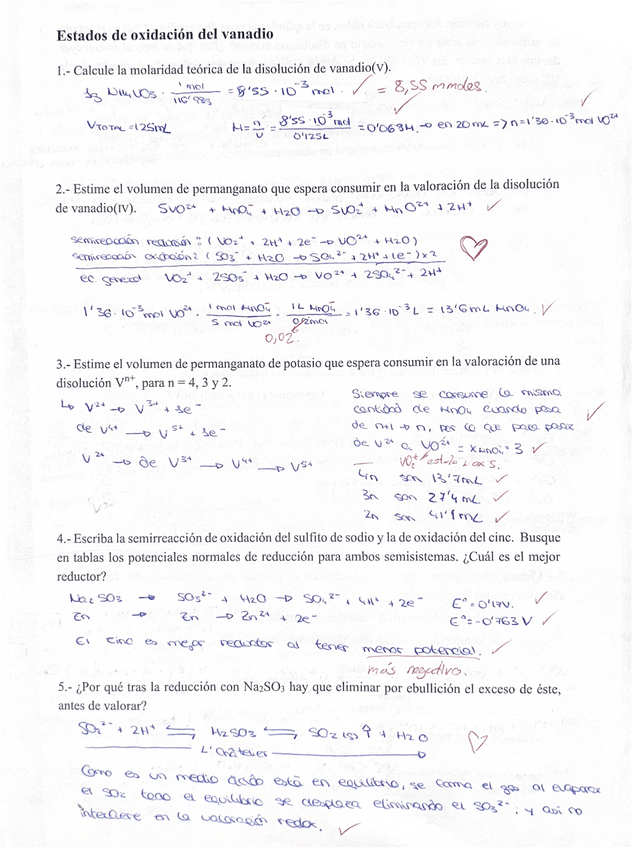 Estados de oxidación del vanadio
1.- Calcule la molaridad teórica de la disolución de vanadio(V).
1g NH4VO3 · 1 mol / 116'98g = 8'55 · 10⁻³ mol. ✓ = 8,55 mmoles.
VTOTAL = 125mL M = n/V = 8'55 · 10⁻³ mol / 0'125L = 0'068M. → en 20 mL => n = 1'36 · 10⁻³ mol VO²⁺
2.- Estime el volumen de permanganato que espera consumir en la valoración de la disolución
de vanadio(IV). 5VO²⁺ + MnO4⁻ + H2O → 5VO2⁺ + MnO²⁺ + 2H⁺ ✓
semirreacción reducción: (VO2⁺ + 2H⁺ + 2e⁻ → VO²⁺ + H2O)
semirreacción oxidación: (SO3⁻ + H2O → SO4²⁻ + 2H⁺ + 1e⁻) x2
ec general VO2⁺ + 2SO3⁻ + H2O → VO²⁺ + 2SO4²⁻ + 2H⁺
1'36 · 10⁻³ mol VO²⁺ · 1 mol MnO4⁻ / 5 mol VO²⁺ · 1L MnO4⁻ / 0'2mol = 1'36 · 10⁻³ L = 13'6 mL MnO4⁻. ✓
0,02.
3.- Estime el volumen de permanganato de potasio que espera consumir en la valoración de una
disolución Vⁿ⁺, para n = 4, 3 y 2.
Siempre se consume la misma
↳ V²⁺ → V³⁺ + 1e⁻ cantidad de MnO4 cuando pasa
de V⁴⁺ → V⁵⁺ + 1e⁻ de n+1 → n, por lo que para pasar
de V²⁺ a VO²⁺ = xMnO4⁻ · 3 ✓
V²⁺ → de V³⁺ → V⁴⁺ → V⁵⁺
VO2⁺ estado ox 5.
4n son 13'7mL ✓
3n son 27'4mL ✓
2n son 41'1mL ✓
4.- Escriba la semirreacción de oxidación del sulfito de sodio y la de oxidación del cinc. Busque
en tablas los potenciales normales de reducción para ambos semisistemas. ¿Cuál es el mejor
reductor?
Na2SO3 → SO3²⁻ + H2O → SO4²⁻ + 4H⁺ + 2e⁻ E° = 0'17V. ✓
Zn → Zn → Zn²⁺ + 2e⁻ E° = -0'763 V ✓
El cinc es mejor reductor al tener menor potencial. ✓
más negativo.
5.- ¿Por qué tras la reducción con Na2SO3 hay que eliminar por ebullición el exceso de éste,
antes de valorar?
SO3²⁻ + 2H⁺ ⇌ H2SO3 ⇌ SO2(g)↑ + H2O
L'Châtelier
Como es un medio ácido está en equilibrio, se forma el gas al evaporar
el SO2 todo el equilibrio se desplaza eliminando el SO3²⁻, y así no
interfiere en la valoración redox. ✓